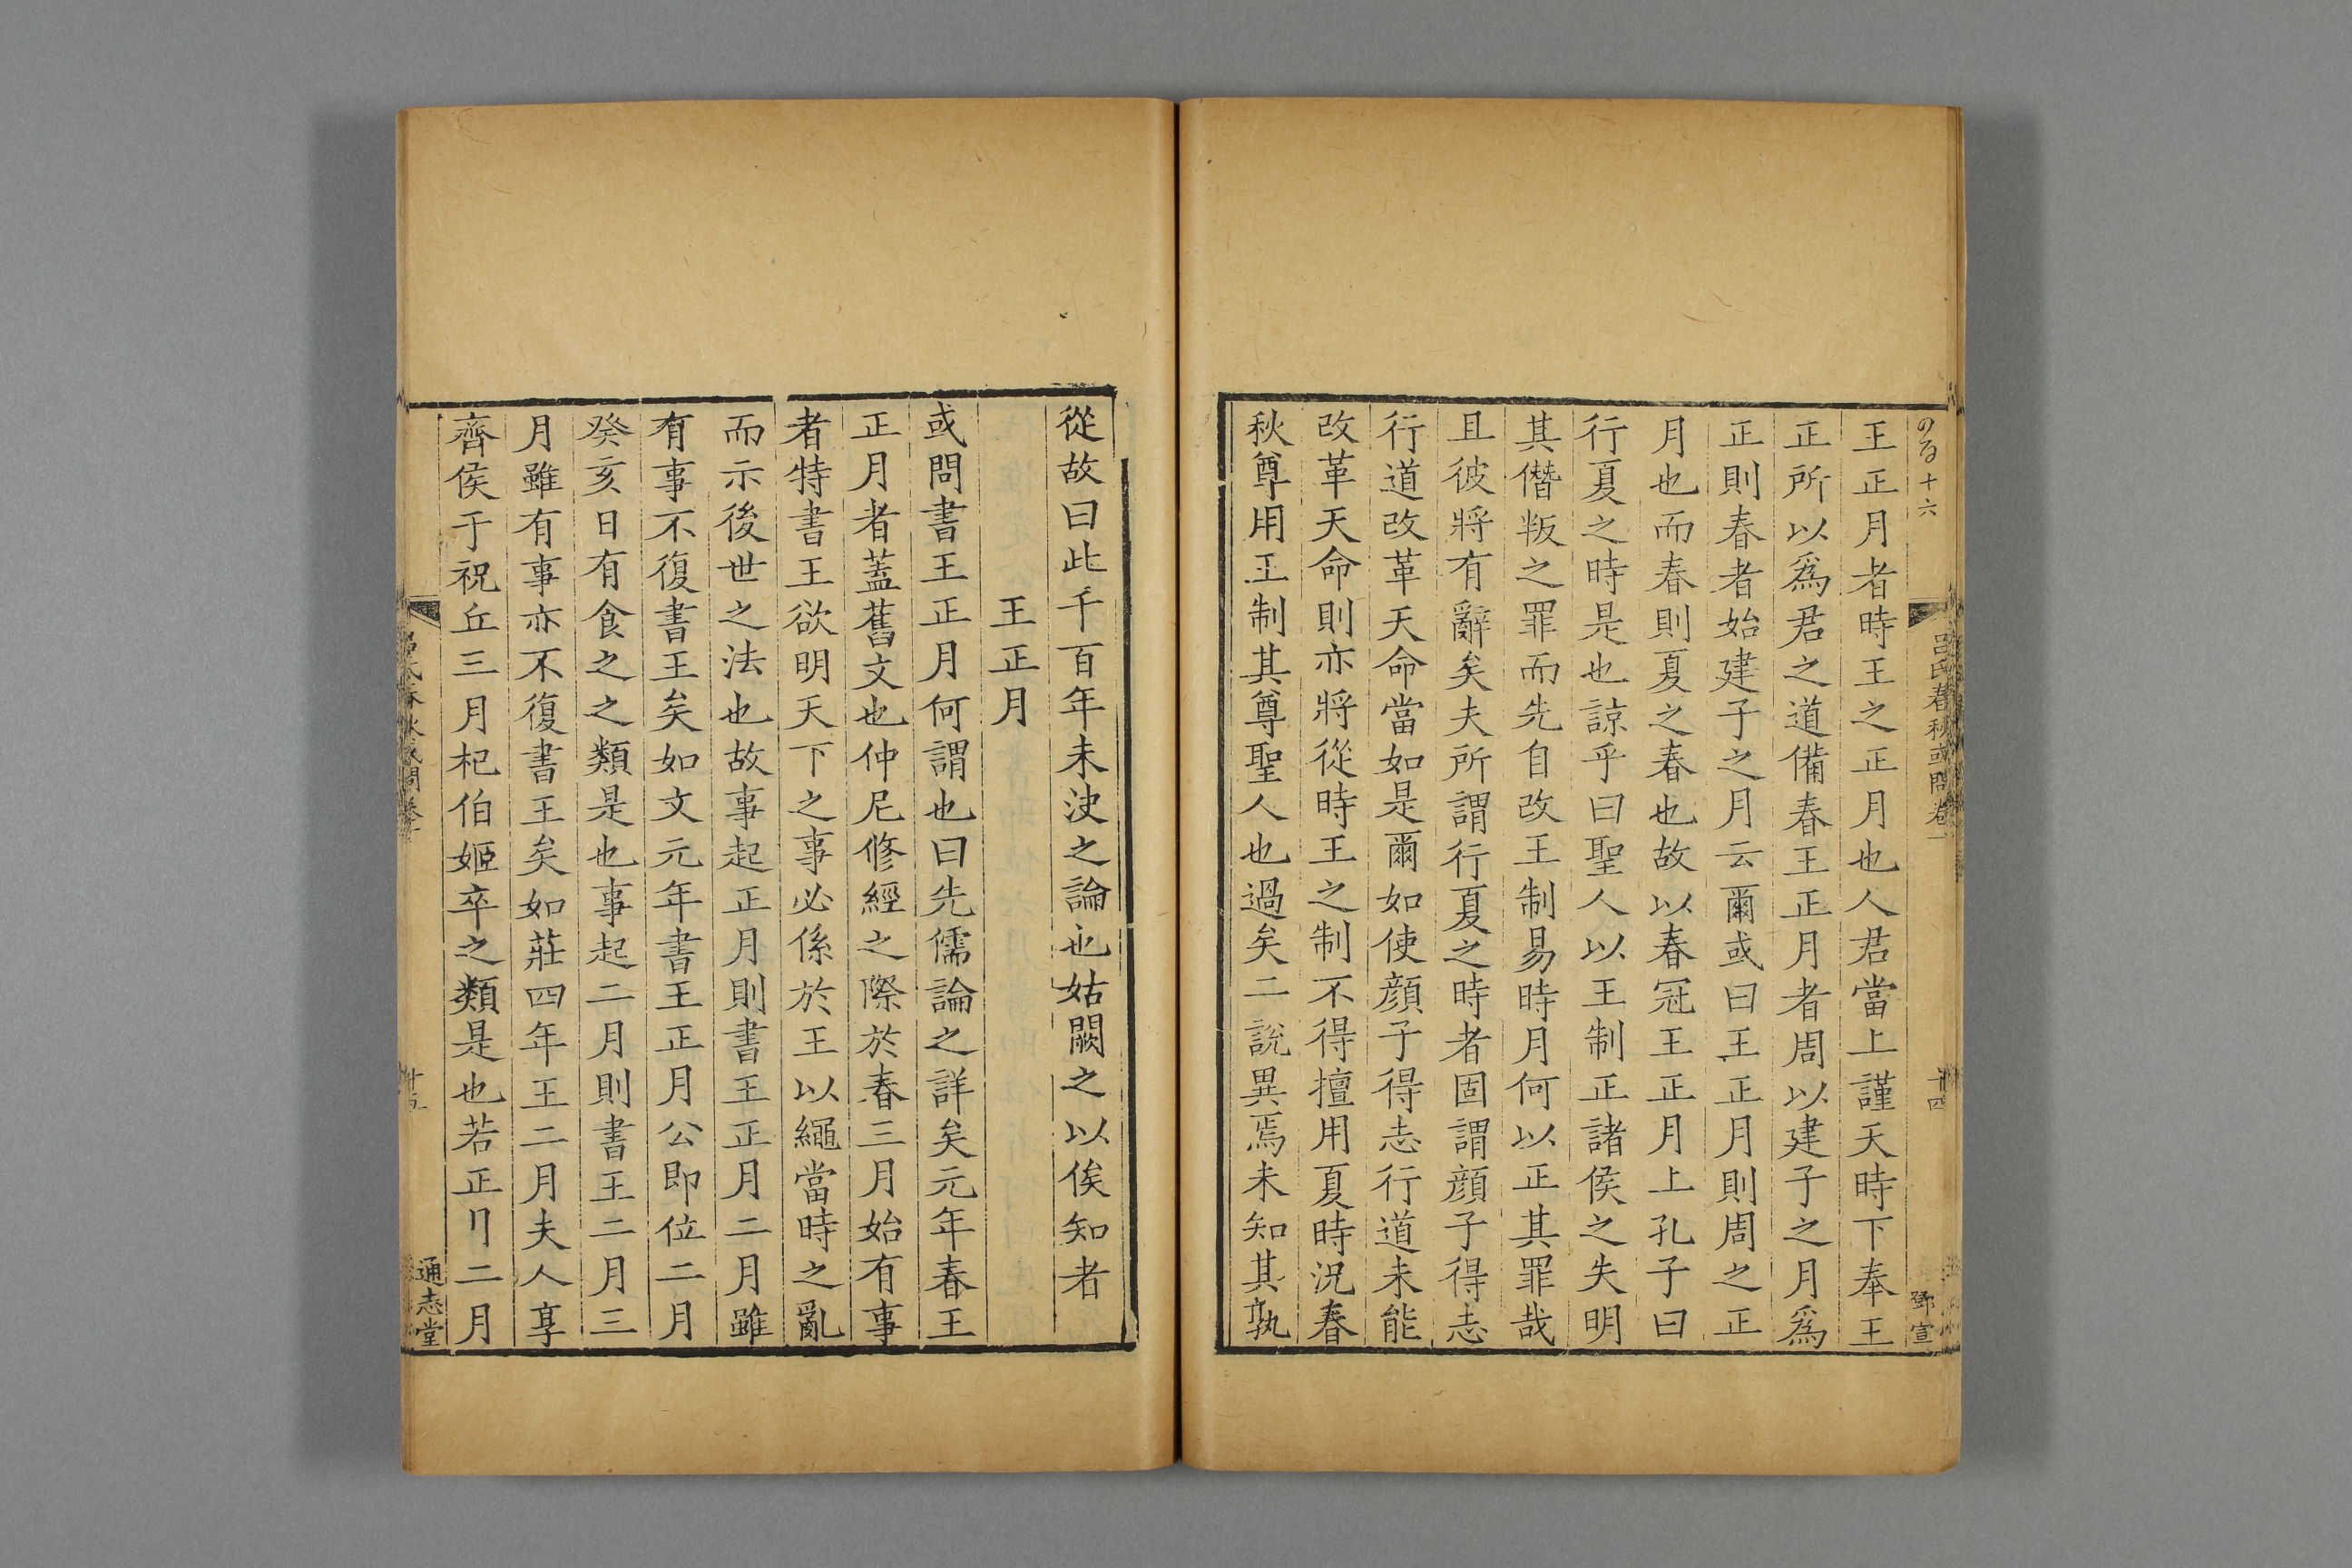 十六
呂氏春秋或問卷一
十四
鄧宣
王正月者時王之正月也人君當上謹天時下奉王
正所以爲君之道備春王正月者周以建子之月爲
正則春者始建子之月云爾或曰王正月則周之正
月也而春則夏之春也故以春冠王正月上孔子曰
行夏之時是也諒乎曰聖人以王制正諸侯之失明
其僭叛之罪而先自改王制易時月何以正其罪哉
且彼將有辭矣夫所謂行夏之時者固謂顔子得志
行道改革天命當如是爾如使顔子得志行道未能
改革天命則亦將從時王之制不得擅用夏時況春
秋尊用王制其尊聖人也過矣二說異焉未知其孰
從故曰此千百年未決之論也姑闕之以俟知者
王正月
或問書王正月何謂也曰先儒論之詳矣元年春王
正月者蓋舊文也仲尼修經之際於春三月始有事
者特書王欲明天下之事必係於王以繩當時之亂
而示後世之法也故事起正月則書王正月二月雖
有事不復書王矣如文元年書王正月公即位二月
癸亥日有食之之類是也事起二月則書王二月三
月雖有事亦不復書王矣如莊四年王二月夫人享
齊侯于祝丘三月杞伯姬卒之類是也若正月二月
呂氏春秋或問卷一
十五
通志堂